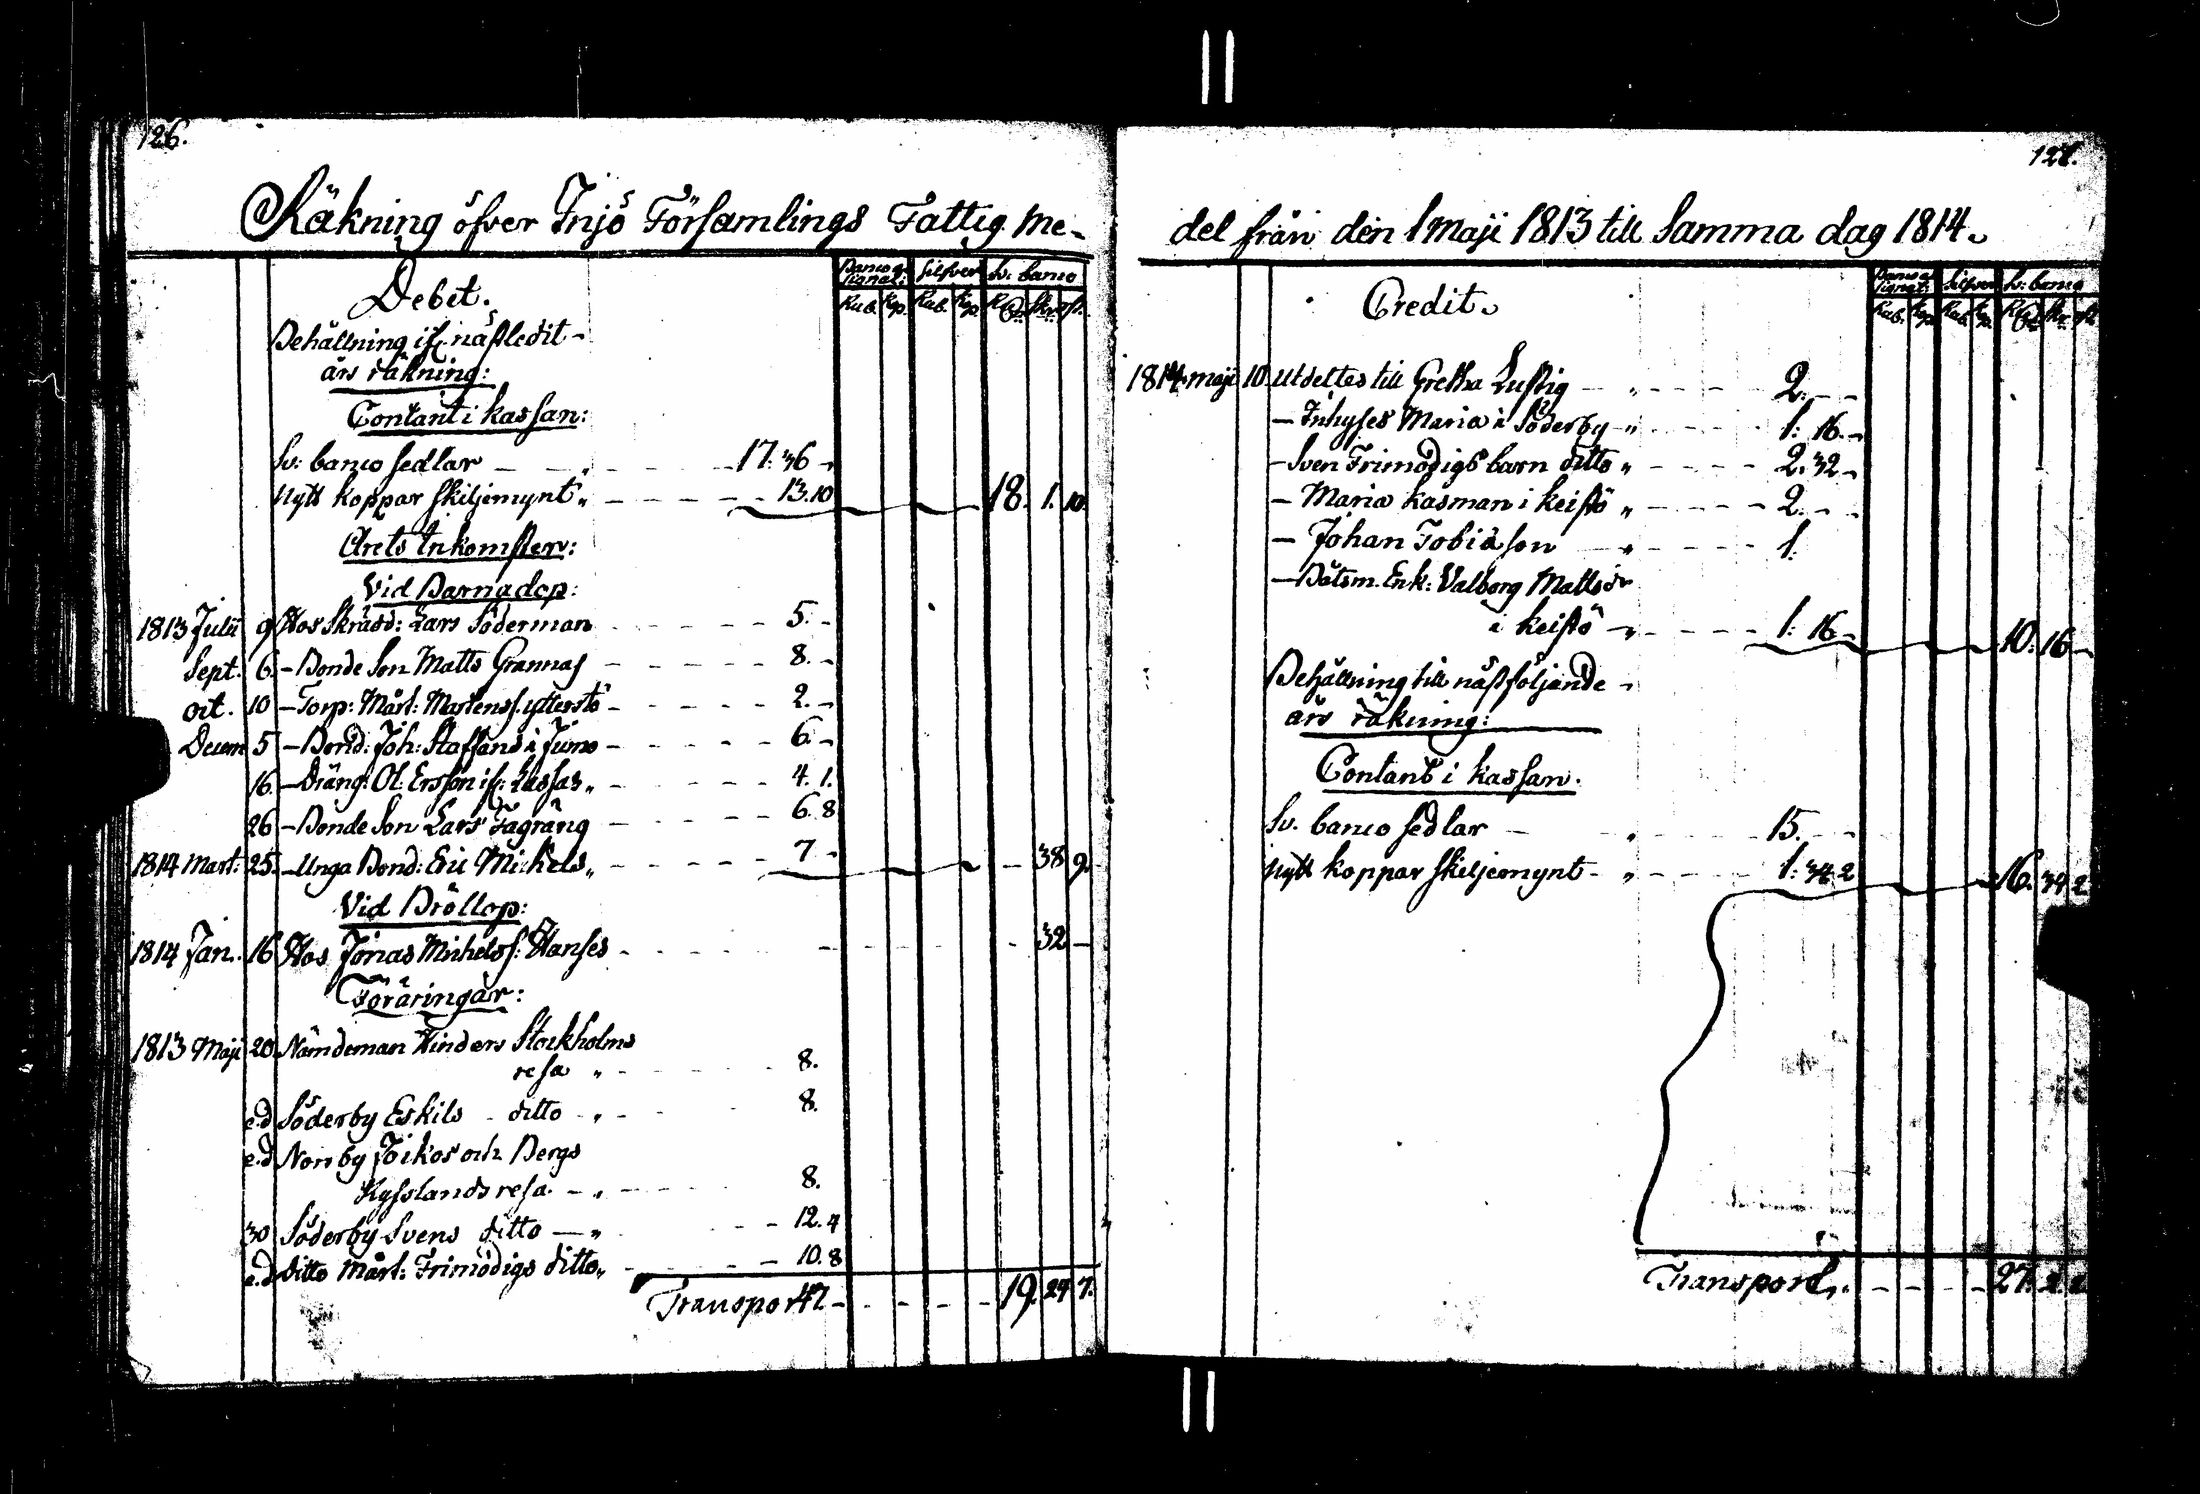 126.
Räkning öfver Injö Församlings Fattig me-
Debet.
Banco assignat: Silfver Sv: banco
Rub. Kop. Rub. Kop. Rdr sk: rst.
Behållning ifr. nästledit-
års räkning:
Contant i kassan:
Sv: banco sedlar — „ - - - - 17. 36 -
Nytt koppar skiljemynt „ - - - - 13. 10 18. 1. 10.
Årets Inkomster:
Vid Barnadop:
1813 Julii 9 Hos Skrädd: Lars Söderman - - - - 5. -
Sept. 6. - Bonde Son Matts Grannas - - - - 8. -
oct. 10 - Torp: Mårt: Mårtenss. ytterstö - - - - 2. -
Decem 5 - Bond: Joh: Staffans i Jumo - - - - 6. -
16. - Dräng: Ol. Ersson ifr: Lassas „ - - - - 4. 1.
26 - Bonde Son Lars Fagräng - - - - 6. 8
1814 Mart: 25. - Unga Bond: Eric Michels „ - - - - 7 - - 38 9.
Vid Bröllop:
1814 Jan. 16 Hos Jonas Michelss: Hanses - - - - 32 -
Föräringar:
1813 Maji 20 Nämdeman Hinders Stockholms
resa „ - - - - 8.
e.d Söderby Eskils - ditto - „ - 8.
e.d Norrby Joikos och Bergs
Rysslands resa. - „ - - - - 8.
30 Söderby Svens ditto — „ - - 12. 4
e.d ditto Mårt: Frimodigs ditto „ - - - 10. 8
Transport - - - - 19. 24 7.
127.
del från den 1 Maji 1813 till Samma dag 1814.
Credit.
Banco assignat: Silfver Sv: banco
Rub. Kop. Rub. Kop. Rdr sk. rst
1814 maji 10. Utdeltes till Gretha Lustig - „ - - - 2. - -
- Inhyses Maria i Söderby - „ - - - 1: 16. -
- Sven Frimodigs barn ditto „ - - - 2. 32 -
- Maria Kasman i Keistö „ - - - 2. - -
- Johan Tobiason - „ - - - 1.
- Båtsm. Enk: Valborg Mattsdr
i Keistö - „ - - - 1: 16 - 10: 16 -
Behållning till nästföljande -
års räkning:
Contant i kassan.
Sv. banco sedlar - „ - - - 15. - -
Nytt koppar skiljemynt - „ - - - 1: 34 2 16. 34 2
Transport „ - - - - 27. 2. 2